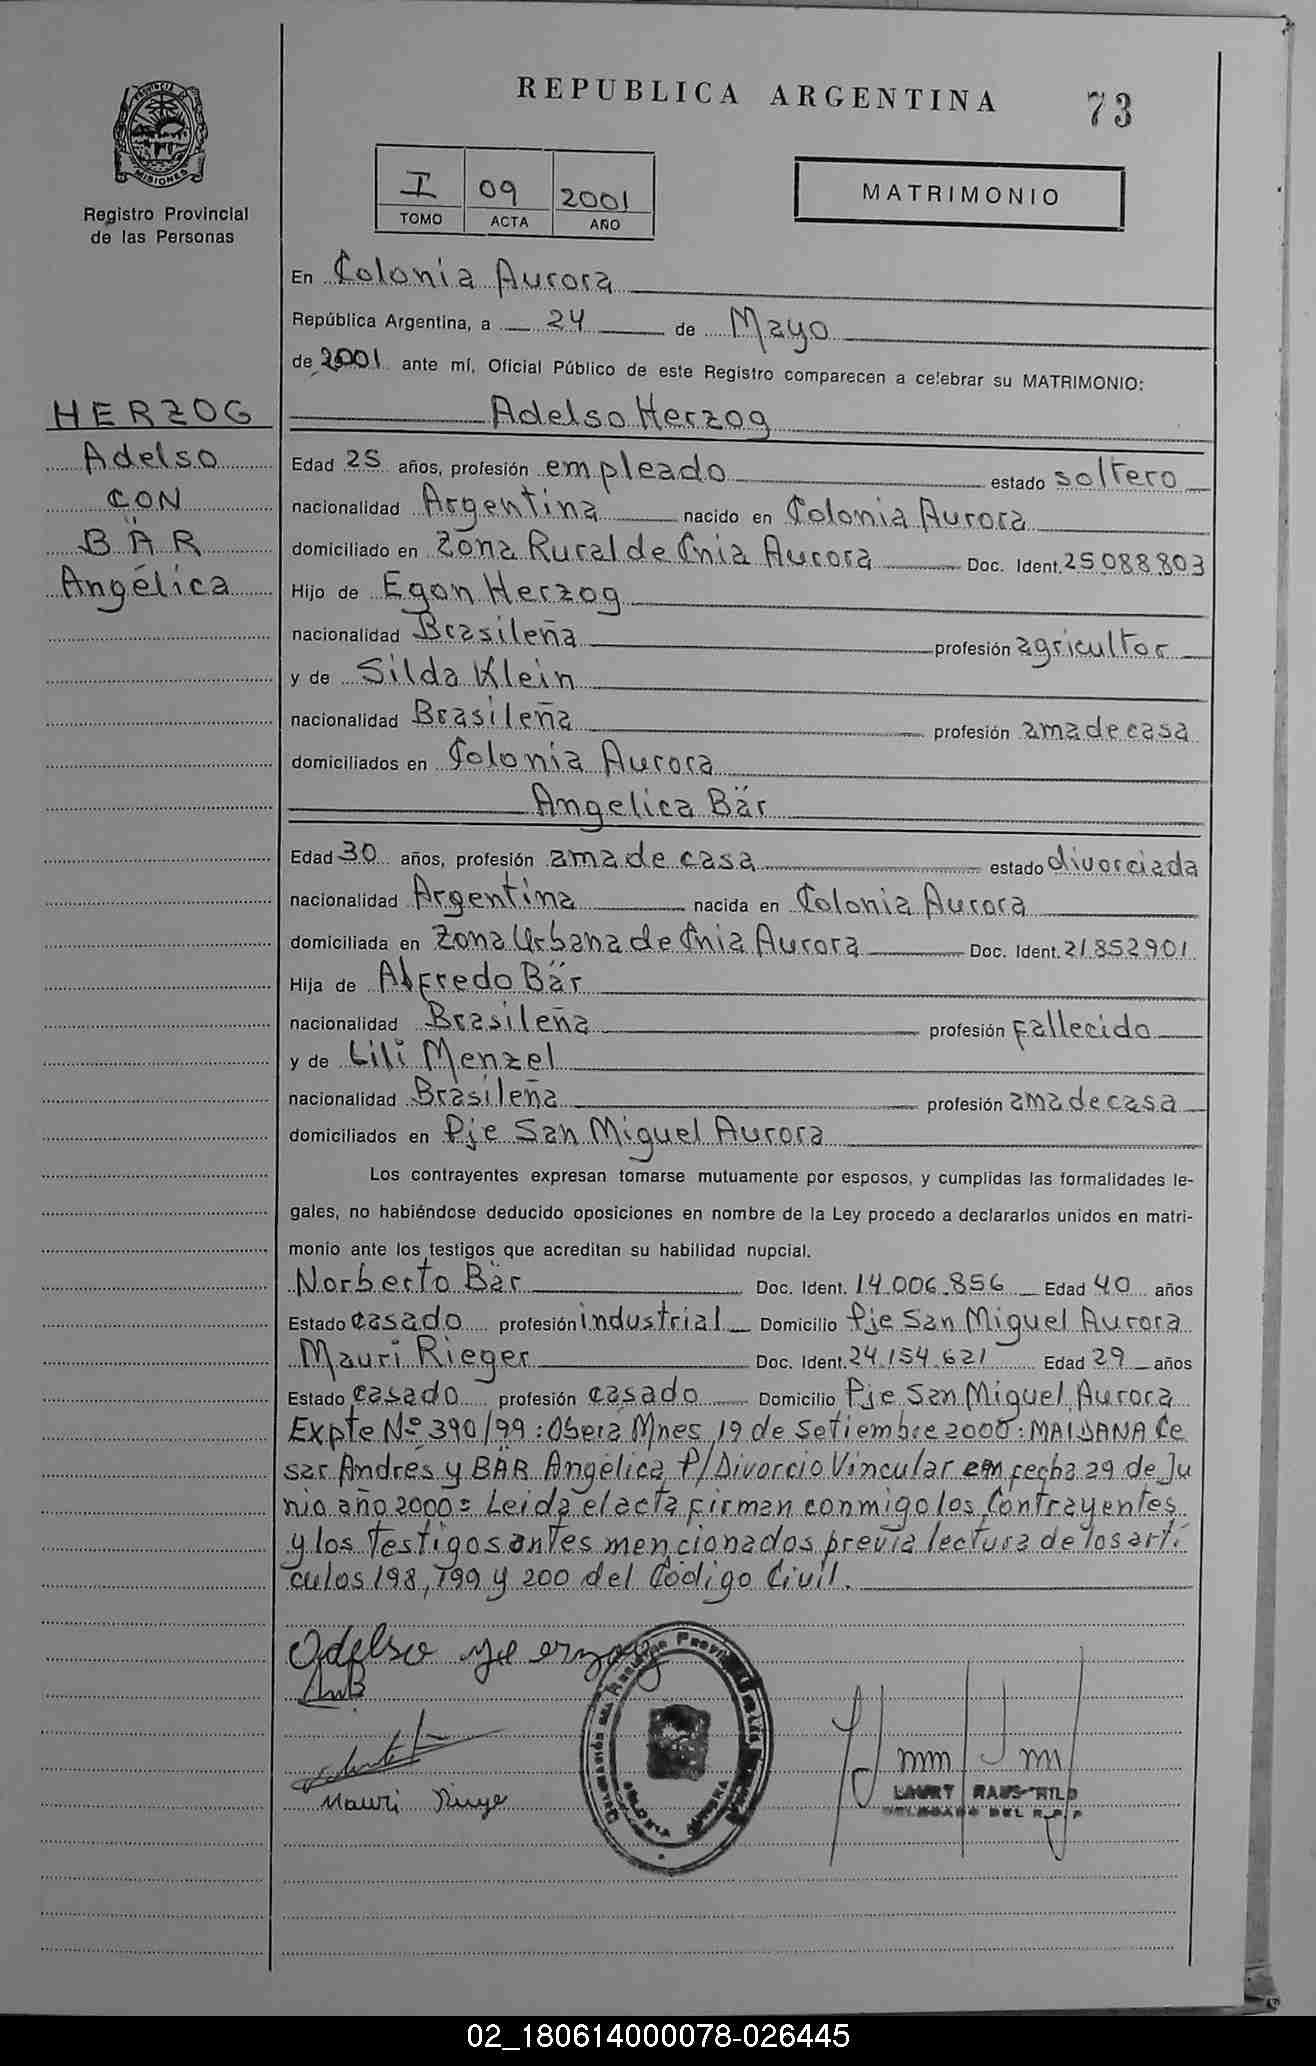 REPUBLICA ARGENTINA
73
PROVINCIA DE
MISIONES
Registro Provincial
de las Personas
I 09 2001
TOMO ACTA AÑO
MATRIMONIO
En Colonia Aurora
República Argentina, a 24 de Mayo
de 2001 ante mí, Oficial Público de este Registro comparecen a celebrar su MATRIMONIO:
HERZOG
Adelso
CON
BÄR
Angélica
Adelso Herzog
Edad 25 años, profesión empleado estado soltero
nacionalidad Argentina nacido en Colonia Aurora
domiciliado en Zona Rural de Cnia Aurora Doc. Ident. 25.088.803
Hijo de Egon Herzog
nacionalidad Brasileña profesión agricultor
y de Silda Klein
nacionalidad Brasileña profesión ama de casa
domiciliados en Colonia Aurora
Angelica Bär
Edad 30 años, profesión ama de casa estado divorciada
nacionalidad Argentina nacida en Colonia Aurora
domiciliada en Zona Urbana de Cnia Aurora Doc. Ident. 21.852.901
Hija de Alfredo Bär
nacionalidad Brasileña profesión fallecido
y de Lili Menzel
nacionalidad Brasileña profesión ama de casa
domiciliados en Pje San Miguel Aurora
Los contrayentes expresan tomarse mutuamente por esposos, y cumplidas las formalidades le-
gales, no habiéndose deducido oposiciones en nombre de la Ley procedo a declararlos unidos en matri-
monio ante los testigos que acreditan su habilidad nupcial.
Norberto Bär Doc. Ident. 14.006.856 Edad 40 años
Estado casado profesión industrial Domicilio Pje San Miguel Aurora
Mauri Rieger Doc. Ident. 24.154.621 Edad 29 años
Estado casado profesión casado Domicilio Pje San Miguel Aurora
Expte Nº 390/99: Oberá Mnes, 19 de Setiembre 2000: MAIDANA Ce
sar Andrés y BÄR Angélica P/Divorcio Vincular en fecha 29 de Ju
nio año 2000= Leida el acta firman conmigo los Contrayentes
y los Testigos antes mencionados previa lectura de los artí
culos 198, 199 y 200 del Código Civil.
Adelso Herzog
AnB
Mauri Rieger
COLONIA AURORA
DELEGADO DEL R.P.P
02_180614000078-026445